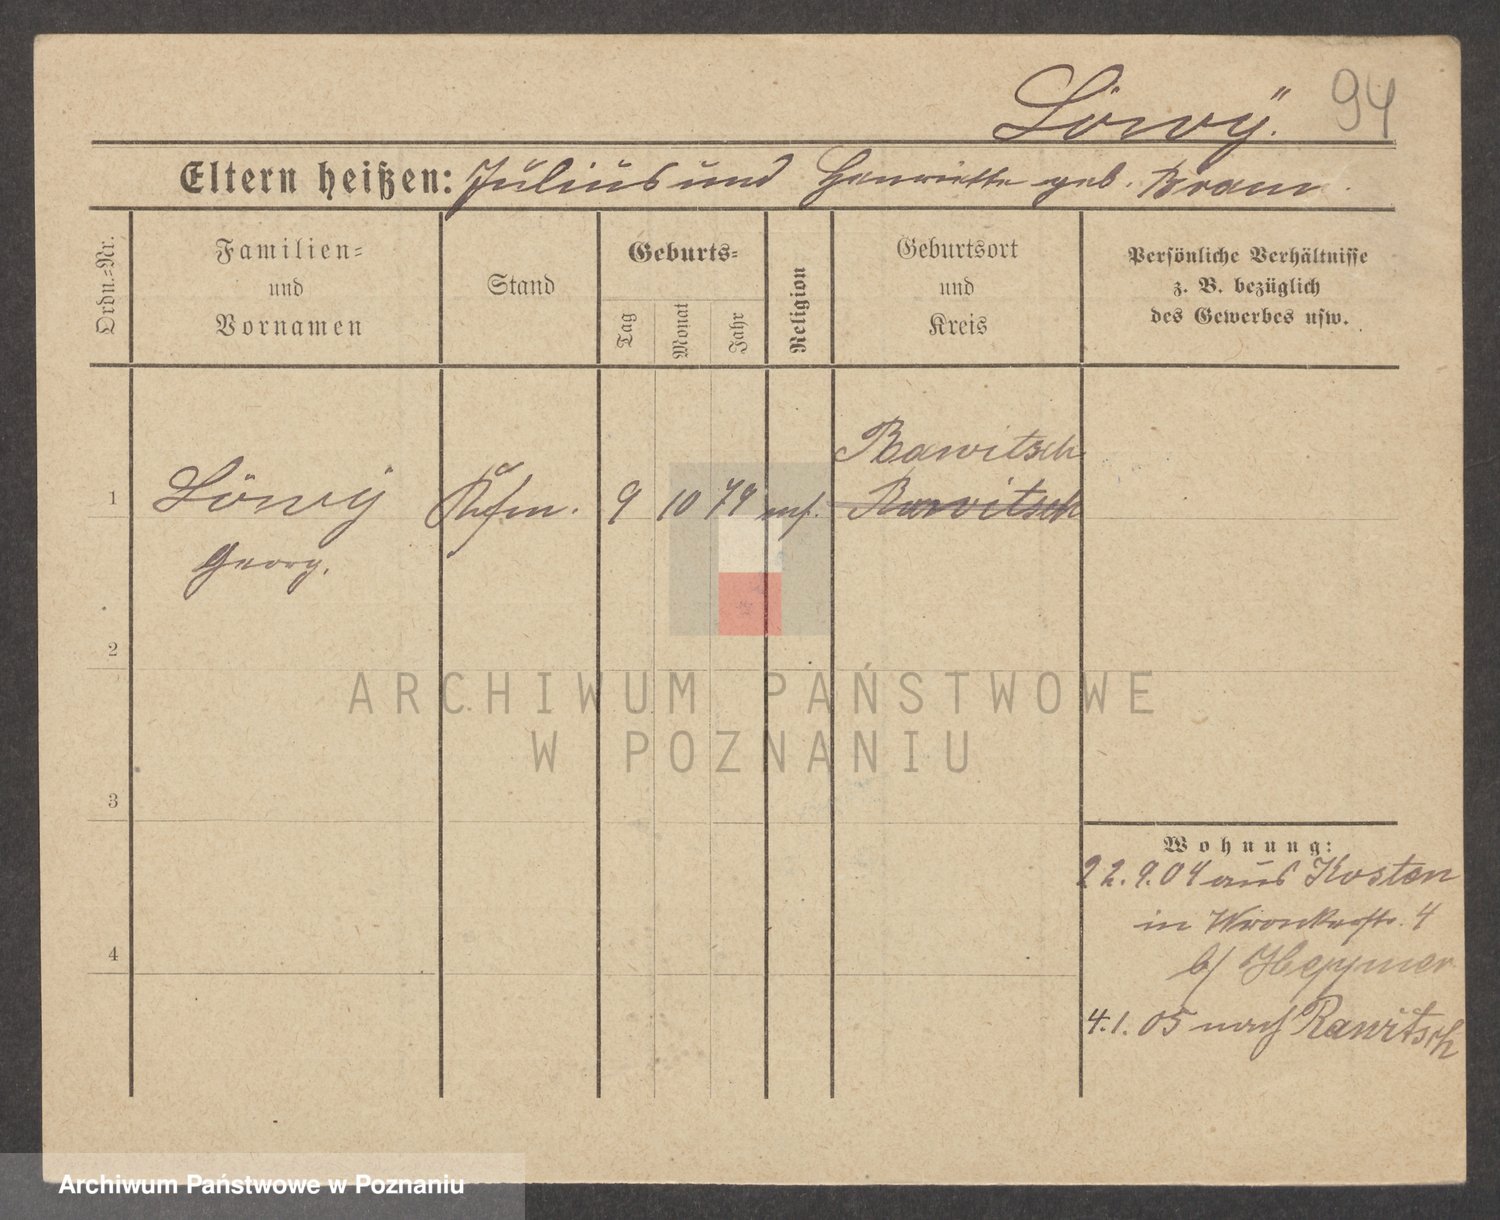 Löwÿ. 94
Eltern heißen: Julius und Henriette geb. Bram.
Ordn.-Nr.
Familien-
und
Vornamen
Stand
Geburts-
Tag
Monat
Jahr
Religion
Geburtsort
und
Kreis
Persönliche Verhältnisse
z. B. bezüglich
des Gewerbes usw.
Rawitsch
1 Löwÿ Kfm. 9 10 79 mos. Rawitsch
Georg.
2
ARCHIWUM PAŃSTWOWE
W POZNANIU
3
Wohnung:
22.9.04 aus Kosten
in Wronkerstr. 4
b/
4
4.1.05 nach Rawitsch
Archiwum Państwowe w Poznaniu